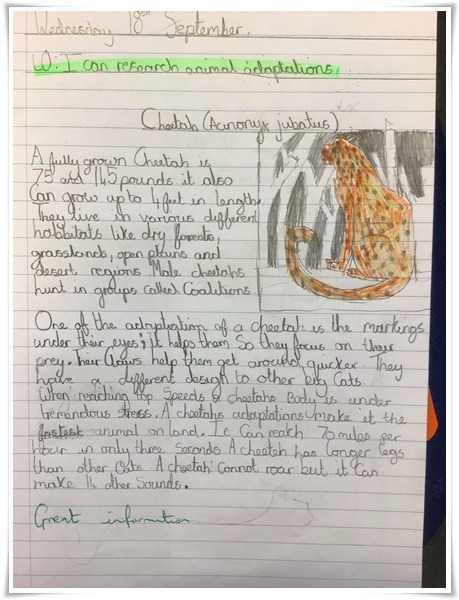 Wednesday 18th September.
W: I can research animal adaptations
Cheetah (Acinonyx jubatus)
A fully grown Cheetah is
75 and 145 pounds it also
Can grow up to 4 feet in length.
They live in various different
habbitats like dry forests,
grasslands, open plains and
desert regions. Male cheetahs
hunt in groups called Coalitions.
One of the adaptation of a cheetah is the markings
under their eyes; it helps them So they focus on their
prey. Their Claws help them get around quicker. They
have a different design to other big Cats.
When reaching top Speeds a cheetahs Body is under
tremendous stress. A cheetahs adaptations make it the
fastest animal on land. It Can reach 70 miles per
hour in only three Seconds. A cheetah has longer legs
than other Cats. A cheetah Cannot roar but it Can
make 14 other Sounds.
Great information